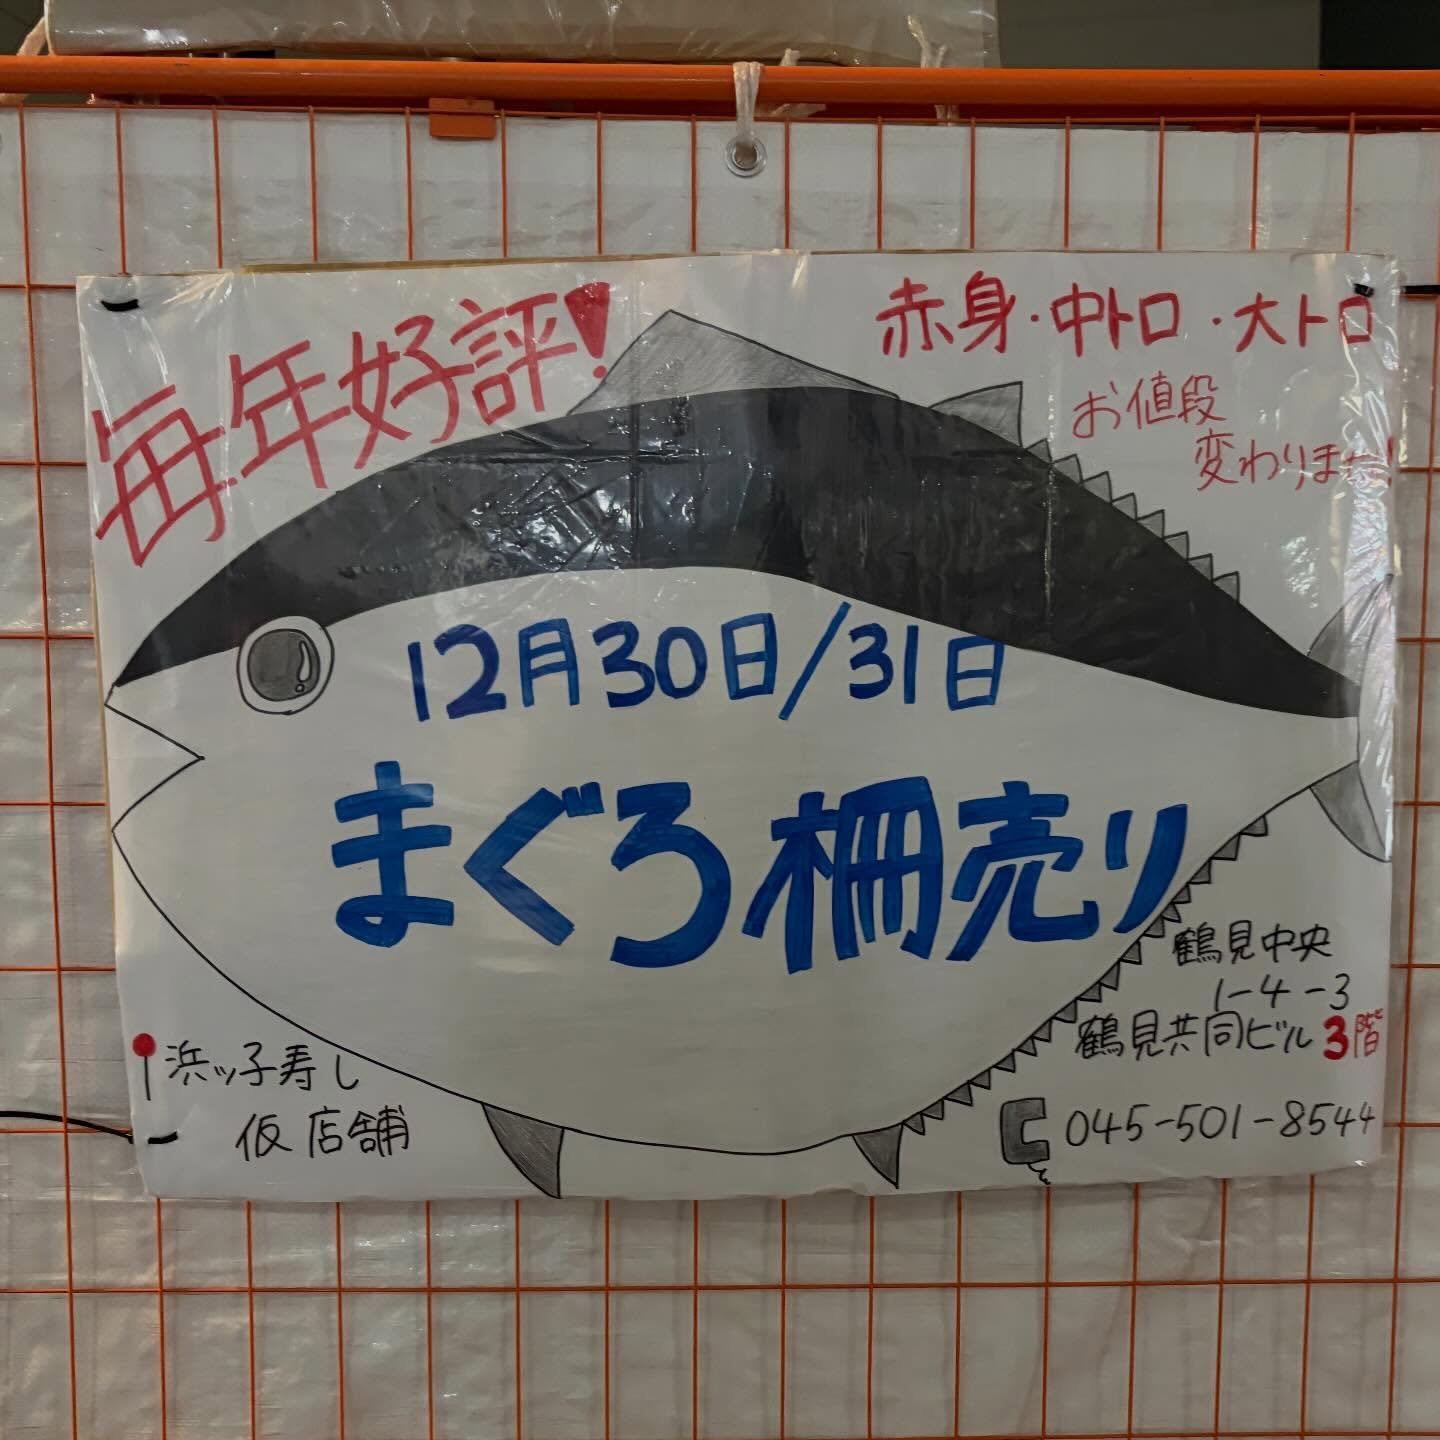 毎年好評!
赤身・中トロ・大トロ
お値段
変わりません!
12月30日/31日
まぐろ柵売り
鶴見中央
1-4-3
鶴見共同ビル3階
浜ッ子寿し
仮店舗
045-501-8544